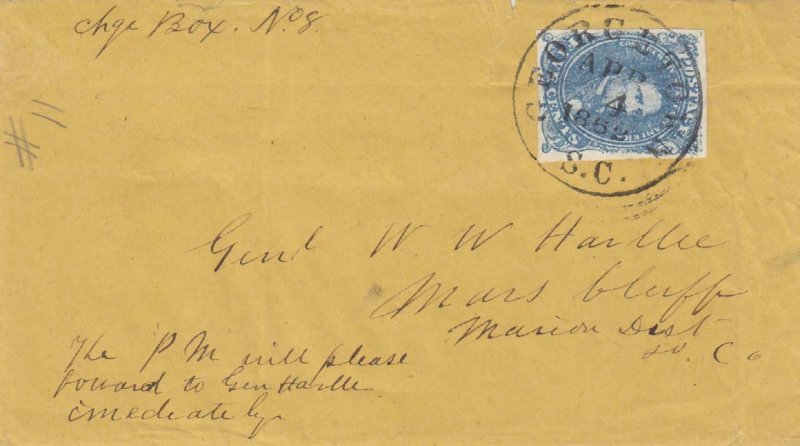 chge Box. No 8.
# 11
GEORGETOWN
APR
4
1862
S.C.
POSTAGE
Genl W. W Harllee
Mars Bluff
Marion Dist
So. Co
The P M will please
forward to Gen Harlle
imediately